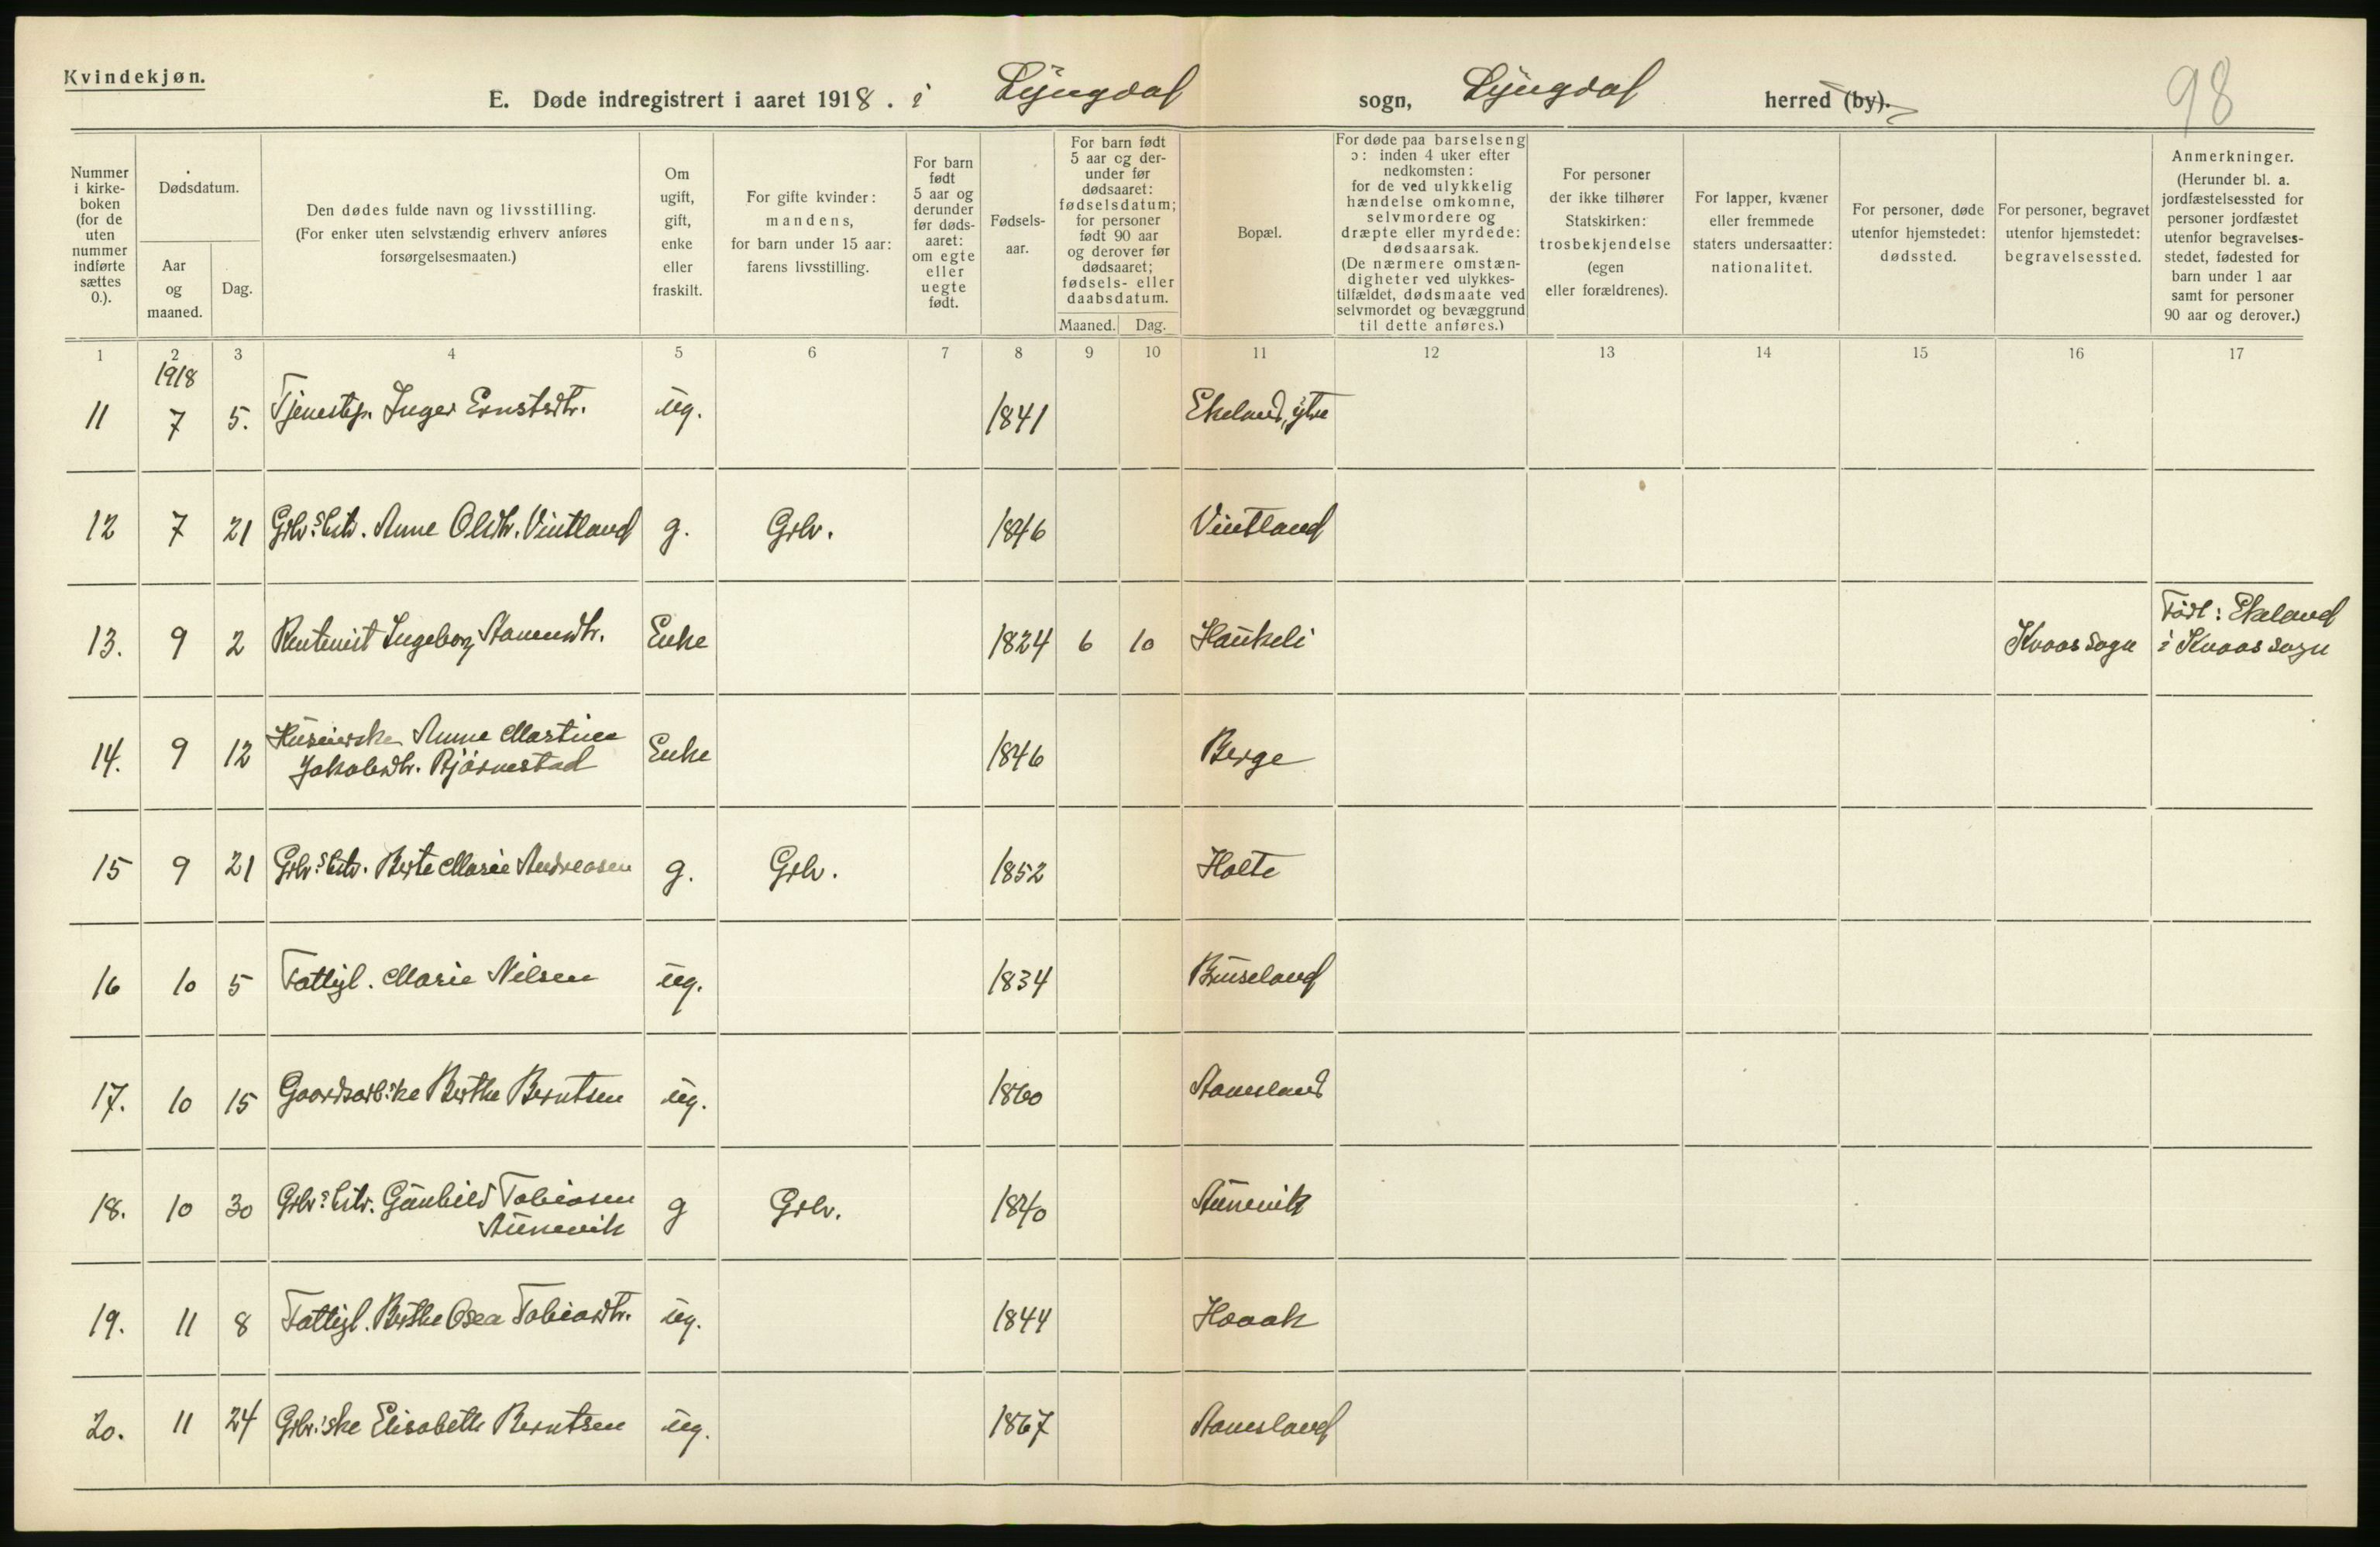 Kvindekjøn.
E. Døde indregistrert i aaret 1918. i Lyngdal sogn, Lyngdal herred (by).
98
Nummer i kirke-boken (for de uten nummer indførte sættes 0.).
Dødsdatum.
Aar og maaned.
Dag.
Den dødes fulde navn og livsstilling.
(For enker uten selvstændig erhverv anføres forsørgelsesmaaten.)
Om ugift, gift, enke eller fraskilt.
For gifte kvinder: mandens, for barn under 15 aar: farens livsstilling.
For barn født 5 aar og derunder før døds-aaret: om egte eller uegte født.
Fødsels-aar.
For barn født 5 aar og der-under før dødsaaret: fødselsdatum; for personer født 90 aar og derover før dødsaaret; fødsels- eller daabsdatum.
Maaned. Dag.
Bopæl.
For døde paa barselseng ɔ: inden 4 uker efter nedkomsten: for de ved ulykkelig hændelse omkomne, selvmordere og dræpte eller myrdede: dødsaarsak. (De nærmere omstæn-digheter ved ulykkes-tilfældet, dødsmaate ved selvmordet og bevæggrund til dette anføres.)
For personer der ikke tilhører Statskirken: trosbekjendelse (egen eller forældrenes).
For lapper, kvæner eller fremmede staters undersaatter: nationalitet.
For personer, døde utenfor hjemstedet: dødssted.
For personer, begravet utenfor hjemstedet: begravelsessted.
Anmerkninger. (Herunder bl. a. jordfæstelsessted for personer jordfæstet utenfor begravelses-stedet, fødested for barn under 1 aar samt for personer 90 aar og derover.)
1 2 3 4 5 6 7 8 9 10 11 12 13 14 15 16 17
1918
11 7 5. Tjenestep. Inger Ernstsdtr. ug. 1841 Ekeland, ytre
12 7 21 Grbr.s Anne Olsdtr. Vintland g. Grbr. 1846 Vintland
13. 9 2 Rentenist Ingeborg Enke 1824 6 10 Haukeli Kvaas sogn Født: Ekeland
i Kvaas sogn
14. 9 12 Anne Martine Enke 1846 Berge
Jakobsdtr. Bjørnestad
15 9 21 Grbr.s Berte Marie Andreasen g. Grbr. 1852 Holte
16 10 5 Fattigl. Marie Nilsen ug. 1834 Bruseland
17. 10 15 Gaardsarb.ske Berthe Berntsen ug. 1860 Stamsland
18. 10 30 Grbr.s Gunhild Tobiasen g Grbr. 1840 Aunevik
Aunevik
19. 11 8 Fattigl. Berthe Osea Tobiasdtr. ug. 1844 Haaak
20. 11 24 Grbr.ske Elisabeth Berntsen ug. 1867 Stamsland